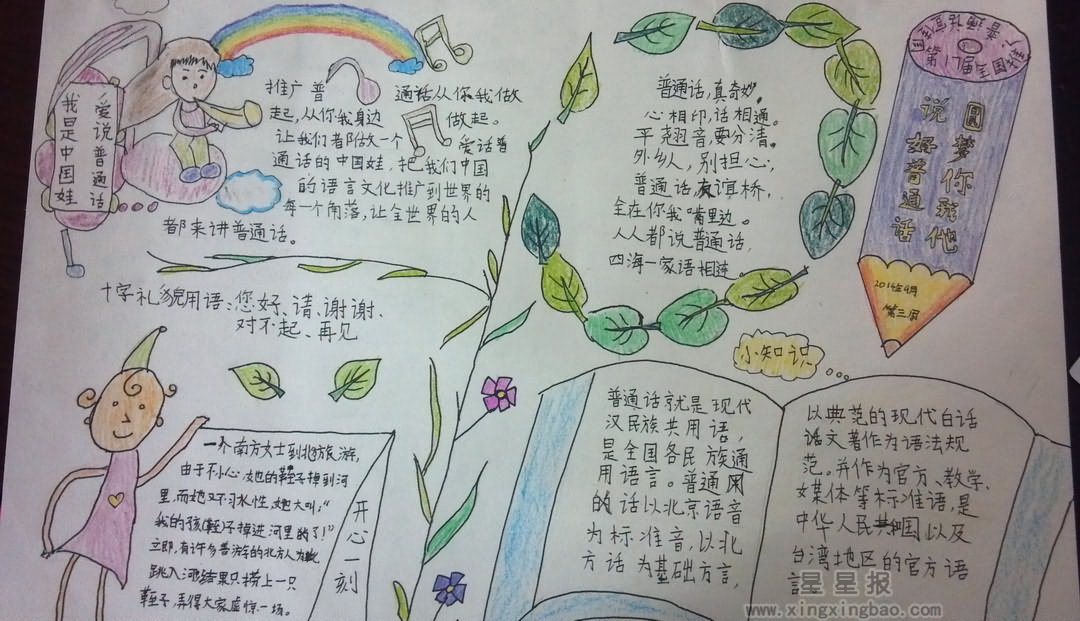 爱说普通话
我是中国娃
推广普通话从你我做
起,从你我身边做起。
让我们都做一个爱话普
通话的中国娃,把我们中国
的语言文化推广到世界的
每一个角落,让全世界的人
都来讲普通话。
十字礼貌用语:您好、请、谢谢、
对不起、再见
普通话,真奇妙。
心相印,话相通。
平翘音,要分清。
外乡人,别担心,
普通话,友谊桥,
全在你我嘴里边。
人人都说普通话,
四海一家语相连。
说好普通话
圆梦你我他
2014年9月
第三周
小知识
普通话就是现代
汉民族共用语,
是全国各民族通
用语言。普通用
的话以北京语音
为标准音,以北
方话为基础方言,
以典范的现代白话
话文著作为语法规
范。并作为官方、教学、
媒体等标准语,是
中华人民共和国以及
台湾地区的官方语
言
一个南方女士到北方旅游,
由于不小心,她的鞋子掉到河
里,而她又不习水性,她大叫:“
我的孩(鞋)子掉进河里的了!”
立即,有许多会游的北方人为此
跳入河,结果只捞上一只
鞋子,弄得大家虚惊一场。
开心一刻
星星报
www.xingxingbao.com